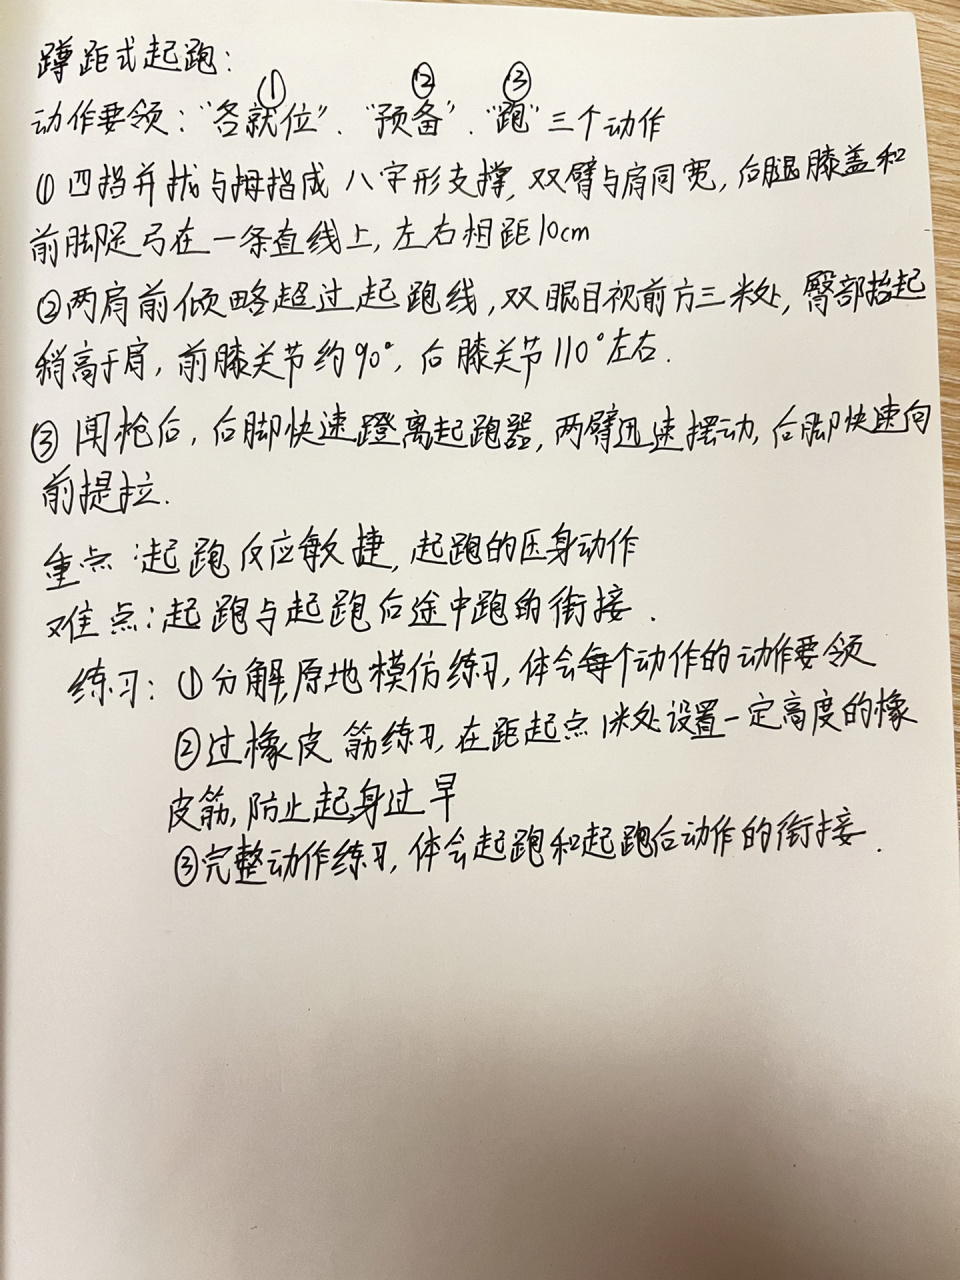 蹲距式起跑：
① ② ③
动作要领："各就位"、"预备"、"跑"三个动作
①四指并拢与拇指成八字形支撑,双臂与肩同宽,后腿膝盖和
前脚足弓在一条直线上,左右相距10cm
②两肩前倾略超过起跑线,双眼目视前方三米处,臀部抬起
稍高于肩,前膝关节约90°,后膝关节110°左右.
③闻枪后,后脚快速蹬离起跑器,两臂迅速摆动,后脚快速向
前提拉.
重点:起跑反应敏捷,起跑的压身动作
难点:起跑与起跑后途中跑的衔接.
练习:①分解,原地模仿练习,体会每个动作的动作要领
②过橡皮筋练习,在距起点1米处设置一定高度的橡
皮筋,防止起身过早
③完整动作练习,体会起跑和起跑后动作的衔接.